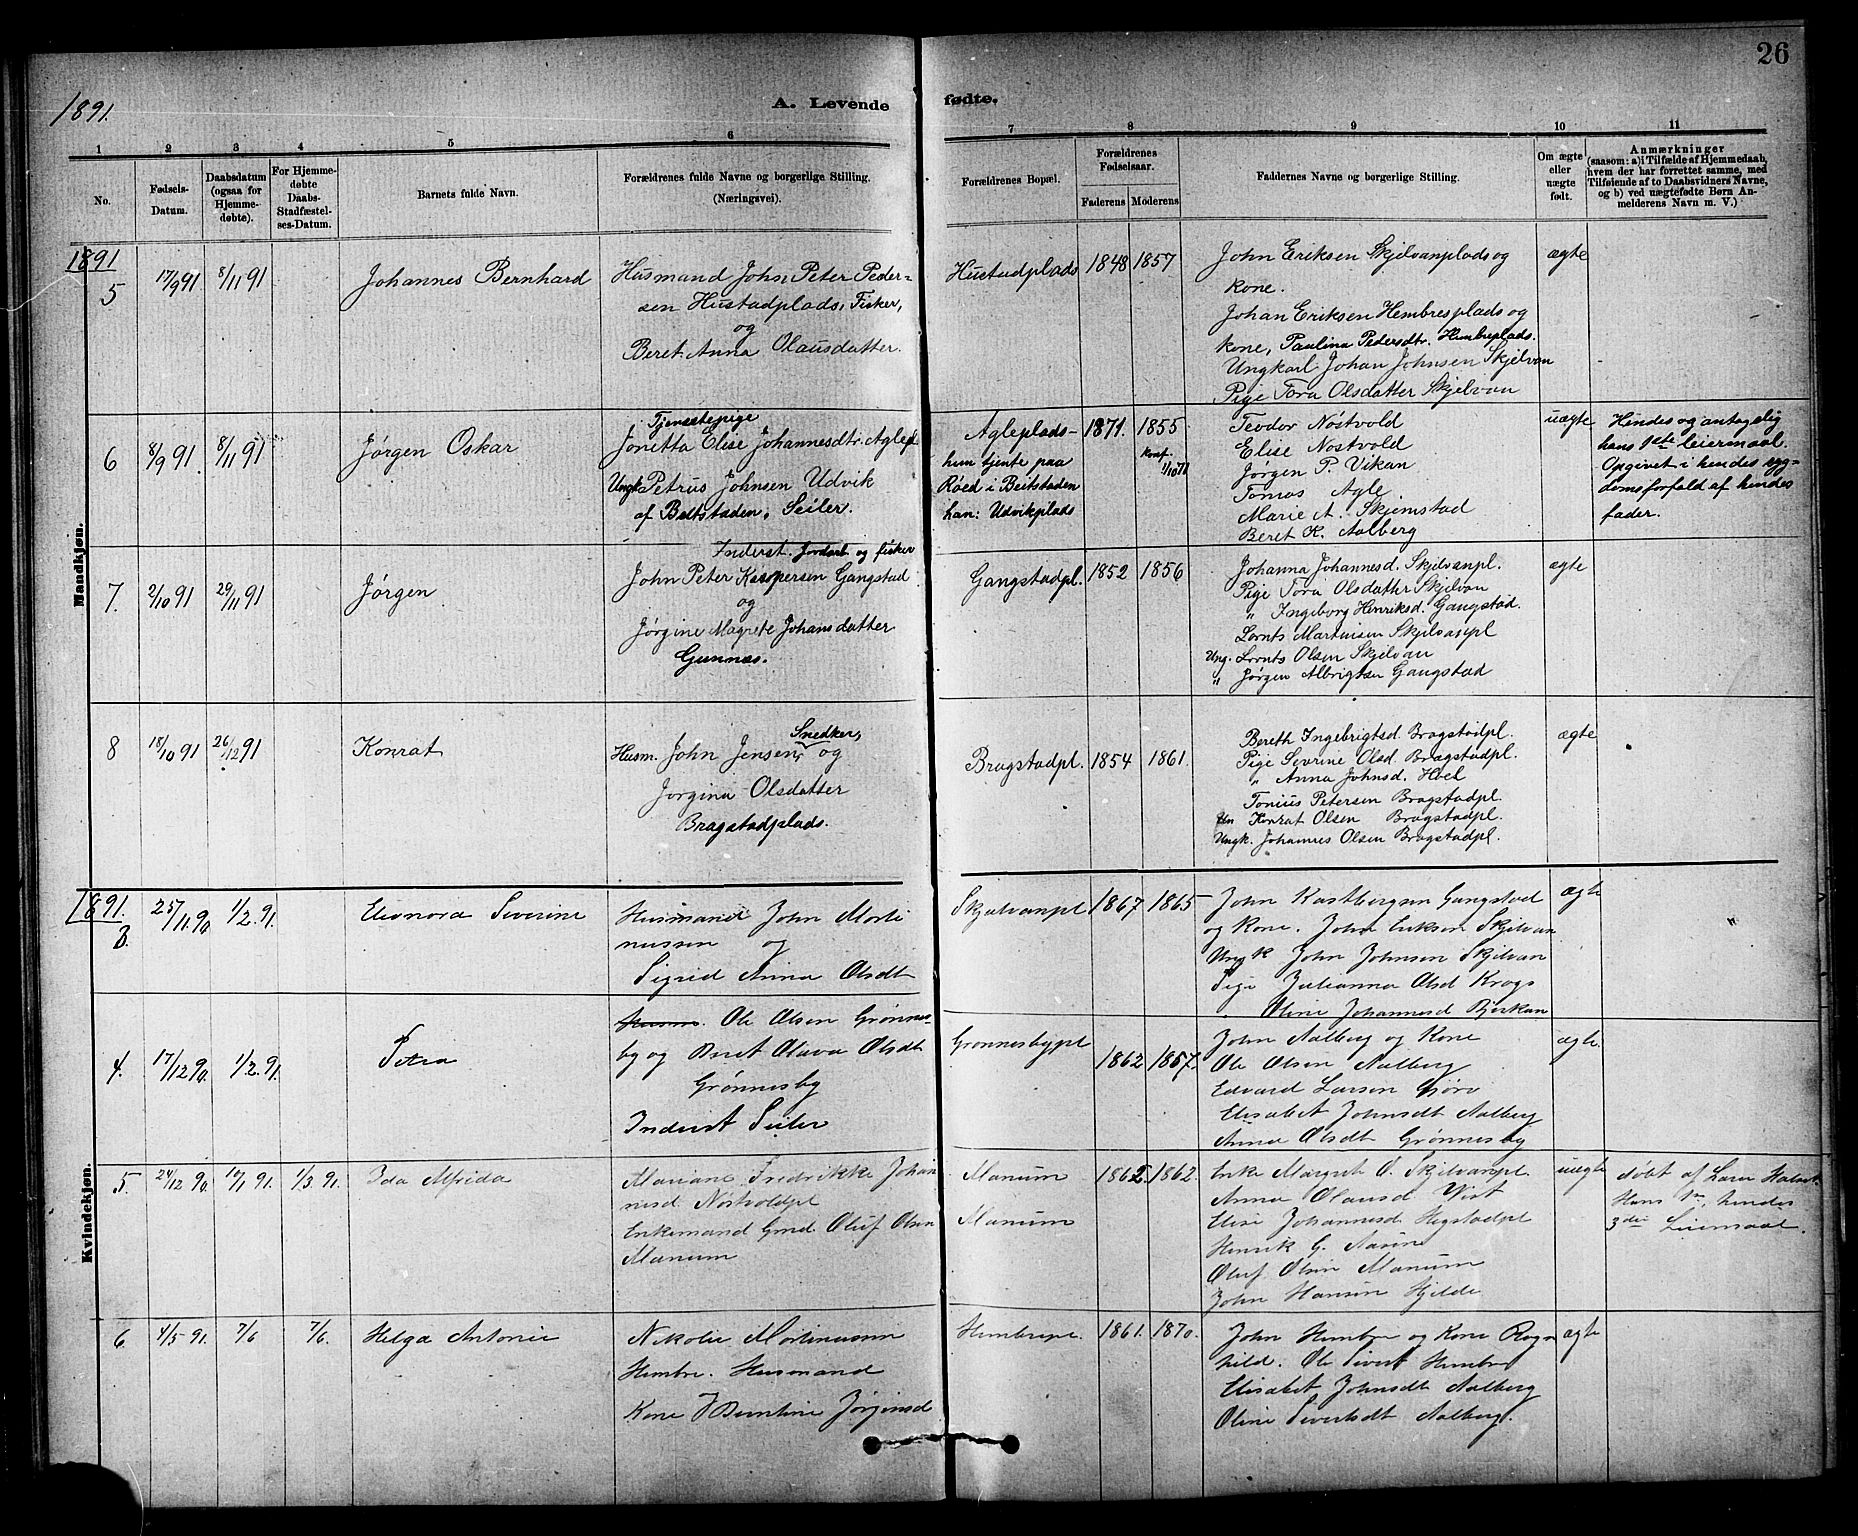 26
1891.
A. Levende fødte.
1 2 3 4 5 6 7 8 9 10 11
No.
Fødsels-
Datum.
Daabsdatum
(ogsaa for
Hjemme-
døbte).
For Hjemme-
døbte
Daabs-
Stadfæstel-
ses-Datum.
Barnets fulde Navn.
Forældrenes fulde Navne og borgerlige Stilling.
(Næringsvei).
Forældrenes Bopæl.
Forældrenes
Fødselsaar.
Faderens Moderens
Faddernes Navne og borgerlige Stilling.
Om ægte
eller
uægte
født.
Anmærkninger
(saasom: a) i Tilfælde af Hjemmedaab,
hvem der har forrettet samme, med
Tilføiende af to Daabsvidners Navne,
og b) ved uægtefødte Børn An-
melderens Navn m. V.)
Mandkjøn.
1891
5
17/9 91
8/11 91
Johannes Bernhard
Husmand John Peter Peder-
sen Hustadplads, Fisker,
og
Beret Anna Olausdatter.
Hustadplads
1848
1857
John Eriksen Skjelvanplads og
kone.
Johan Eriksen Hembresplads og
kone, Paulina Pedersdtr. Hembreplads.
Ungkarl Johan Johnsen Skjelvan
Pige Tora Olsdatter Skjelvan
ægte
6
8/9 91.
8/11 91
Jørgen Oskar
Tjenestepige
Jonetta Elise Johannesdtr. Aglepl
Ungk Petrus Johnsen Udvik
af Beitstaden, Seiler.
Agleplads-
hun tjente paa
Røed i Beitstaden
han: Udvikplads
1871.
1855
konf.
1/10 71
Teodor Nøstvold
Elise Nostvold
Jørgen P. Vikan
Tomas Agle.
Marie A. Skjemstad
Beret K. Aalberg
uægte
Hindes og antagelig
hans 1ste leiermaal
Opgivet i hendes syg-
domsforfald af hindes
fader.
7.
2/10 91
29/11 91
Jørgen
Inderst. Jordarb og fisker
John Peter Kaspersen Gangstad
og
Jørgine Magrete Johansdatter
Gunnes.
Gangstadpl.
1852
1856
Johanna Johannesd. Skjelvanpl.
Pige Tora Olsdatter Skjelvan
" Ingeborg Henriksd. Gangstad.
Lornts Martinsen Skjelvanpl
Ung. Lornts Olsen Skjelvan
" Jørgen Albrigtsen Gangstad
ægte
8
18/10 91
26/12 91
Konrat
Snedker,
Husm. John Jensen, og
Jørgina Olsdatter
Bragstadplads.
Bragstadpl.
1854
1861.
Bereth Ingebrigtsd Bragstadpl.
Pige Severine Olsd. Bragstadpl.
" Anna Johnsd. Hoel
Tonius Petersen Bragstadpl.
Un Konrat Olsen Bragstadpl.
Ungk. Johannes Olsen Bragstadpl.
ægte
Kvindekjøn.
1891.
3.
25/11 90
1/2 91.
Eleonora Severine
Husmand John Morti
nussen og
Sigrid Anna Olsdt
Skjelvanpl
1867
1865
John Kastbergsen Gangstad
og Kone. John Eriksen Skjelvan
Ungk John Johnsen Skjelvan
Pige Julianna Olsd Krogs
" Oline Johannesd Bjerkan
ægte
"
4.
17/12 90.
1/2 91.
Petra
Husm. Ole Olsen Grønnes-
by og Beret Olava Olsdt
Grønnesby
Inderst Seiler
Grønnesbypl
1862
1857.
John Aalberg og Kone
Ole Olsen Aalberg
Edvard Larsen Gjørv
Elisabet Johnsdt Aalberg
Anna Olsdt Grønnesby
ægte.
5.
24/12 90.
1/3 91.
Ida Alfrida
Mariane Fredrikke Johan
nesd Nostvoldpl
Enkemand Gmd. Oluf Olsen
Manum
Manum
Manum
1862
1862.
Enke Margret O. Skjelvanpl.
Anna Olausd Vist
Elise Johannesd Hegstadpl
Henrik G. Aasen
Oluf Olsen Manum
John Hansen Hjelde
uægte
døbt af Lærer
Hans 1ste, hendes
3die Leiermaal.
6.
4/5 91.
7/6
7/6.
Helga Antonie
Nikolai Martinussen
Hembre. Husmand
Kone Berntine Jørginsd
Hembrepl.
1861.
1870.
John Hembre og Kone Ragn
hild. Ole Sivert Hembre
Elisabet Johnsdt Aalberg
Oline Sivertsdt Aalberg.
ægte